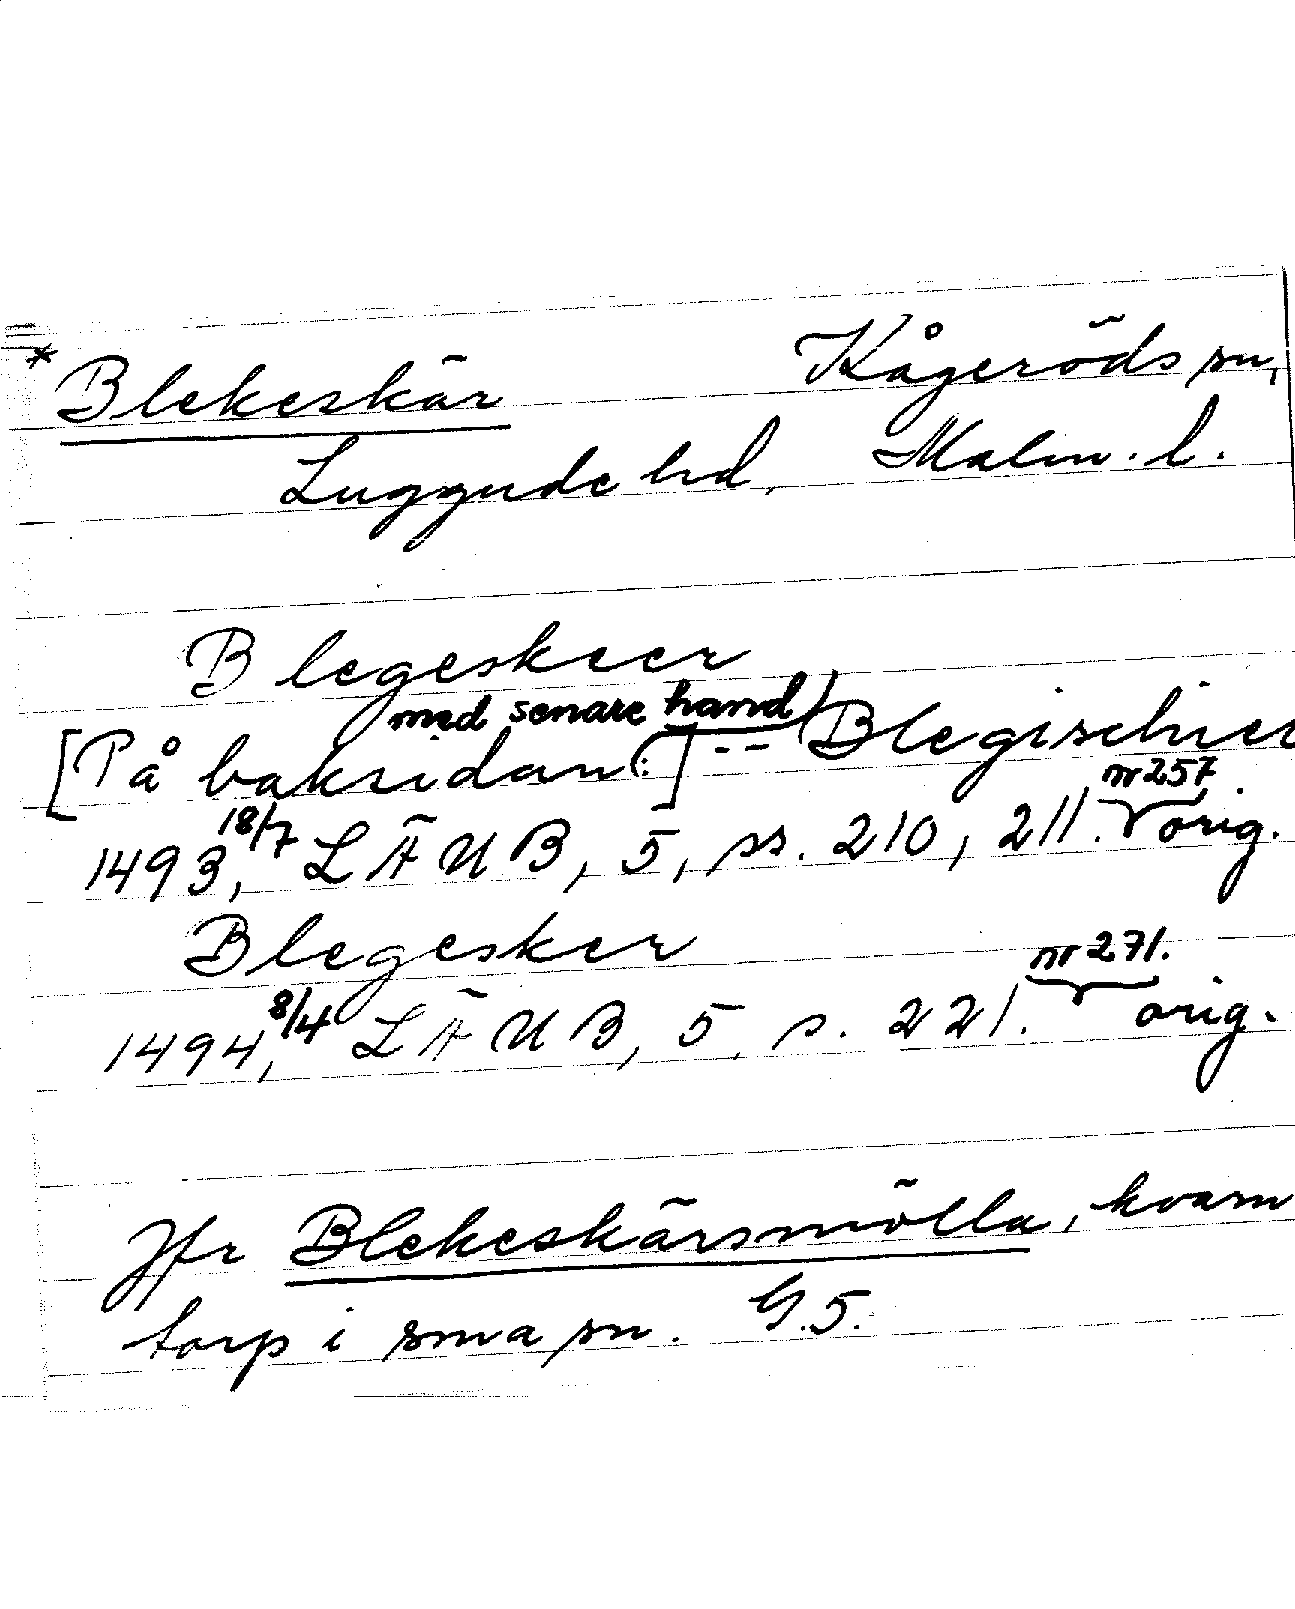 * Blekeskär Kågeröds sn,
Luggude hd, Malm. l.
Blegeskeer
med senare hand
[På baksidan:] -- Blegischier
nr 257.
1493, 18/7 LÄUB, 5, ss. 210, 211. orig.
Blegesker
nr 271.
1494, 8/4 LÄUB, 5, s. 221. orig.
Jfr Blekeskärsmölla, kvarn
torp i sma sn. G.5.